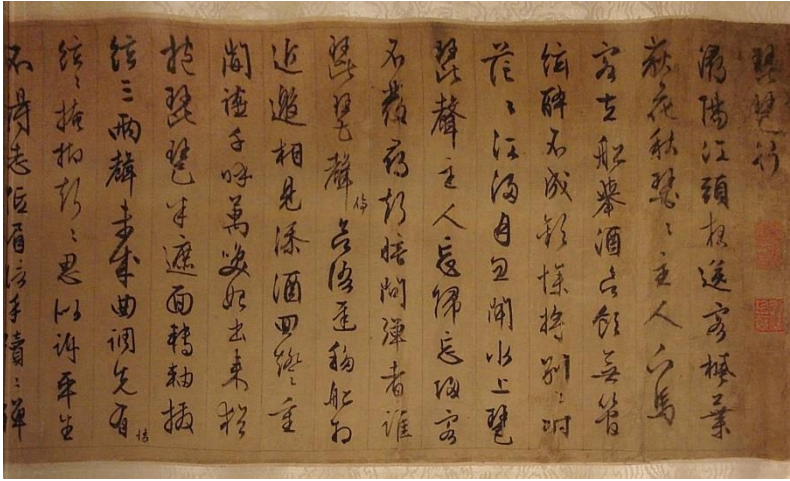 琵琶行
潯陽江頭夜送客楓葉
荻花秋瑟〻主人下馬
客在船舉酒欲飲無管
絃醉不成歡慘將別〻時
茫〻江浸月忽聞水上琵
琶聲主人忘歸忘客
不發尋聲暗問彈者誰
琵琶聲停欲語遲移船相
近邀相見添酒回燈重
開宴千呼萬喚始出來猶
抱琵琶半遮面轉軸撥
絃三兩聲未成曲調先有情
絃〻掩抑聲〻思似訴平生
不得志低眉信手續〻彈